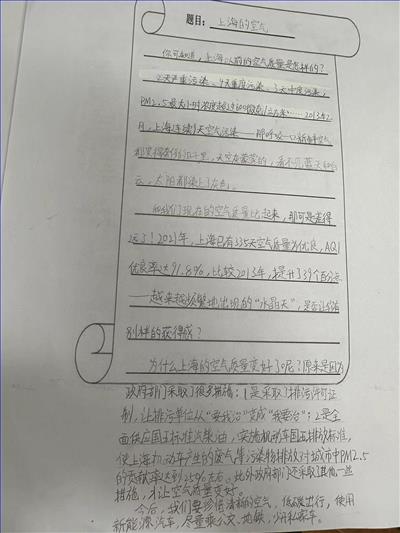 题目：上海的空气
你可知道，上海以前的空气质量是怎样的？
2天严重污染、4天重度污染、3天中度污染，
PM2.5最大1小时浓度超过600微克/立方米……2013年12
月，上海连续9天空气污染——那时吸一口新鲜空气
都变得奢侈。天空灰蒙蒙的，看不见蓝天和白
云，太阳都染上了灰色。
和我们现在的空气质量比起来，那可是差得
远了！2021年，上海已有335天空气质量为优良，AQI
优良率达91.8%，比较2013年，提升了39个百分点
——越来越频繁地出现的“水晶天”，是否让你有
别样的获得感？
为什么上海的空气质量变好了呢？原来是因为
政府部门采取了很多措施：1是采取了排污许可证
制，让排污单位从“要我治”变成“我要治”；2是全
面供应国五标准汽柴油，实施机动车国五排放标准，
使上海机动车产生的废气等污染物排放对城市中PM2.5
的贡献率达到25%左右。此外政府部门还采取其他一些
措施，才让空气质量变好。
今后，我们要珍惜清新的空气，低碳出行，使用
新能源汽车，尽量乘公交、地铁，少用私家车。